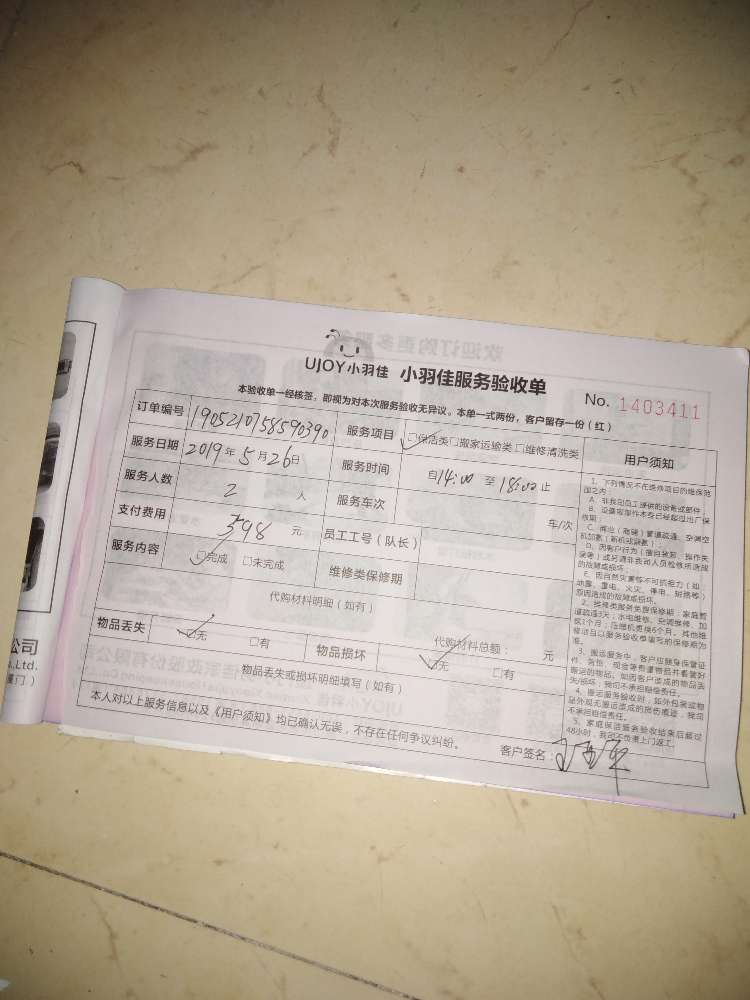 UJOY小羽佳 小羽佳服务验收单
No. 1403411
本验收单一经核签，即视为对本次服务验收无异议。本单一式两份，客户留存一份（红）
订单编号 1905210758590390 服务项目 □保洁类□搬家运输类□维修清洗类 用户须知
服务日期 2019年5月26日 服务时间 自14:00至18:00止
服务人数 2人 服务车次 车/次
支付费用 398元 员工工号（队长）
服务内容 □完成 □未完成 维修类保修期
代购材料明细（如有）
代购材料总额： 元
物品丢失 □无 □有 物品损坏 □无 □有
物品丢失或损坏明细填写（如有）
本人对以上服务信息以及《用户须知》均已确认无误，不存在任何争议纠纷。 客户签名：
1、下列情况不在维修项目的维保范
围之内：
A、非我司员工提供的设备或部件；
B、设备或部件本身已经超过出厂保
修期；
C、商业（商铺）管道疏通、空调空
机加氟（新机或缺氟）；
D、因客户行为（擅自装卸、操作失
误等）或另请非我司人员检修所造成
的故障或损坏；
E、因自然灾害等不可抗拒力（如
地震、雷电、火灾、停电、短路等）
原因造成的故障或损坏。
2、维修类服务免费保修期：家庭管
道疏通3天；水电维修、空调维修、加
氟1个月；压缩机更换6个月。其他维
修项目以服务验收单填写的保修期为
准。
3、搬运服务中，客户应随身保管证
件、首饰、现金等贵重物品并看管好
搬运的物品。如因客户造成的物品丢
失/损坏，我司不承担赔偿责任。
4、搬运服务验收时，如外包装或物
品外观无搬运造成的损伤痕迹，我司
不承担赔偿责任。
5、家庭保洁服务验收结束后超过
48小时，我司不负责上门返工。
公司
Ltd.
厦门）